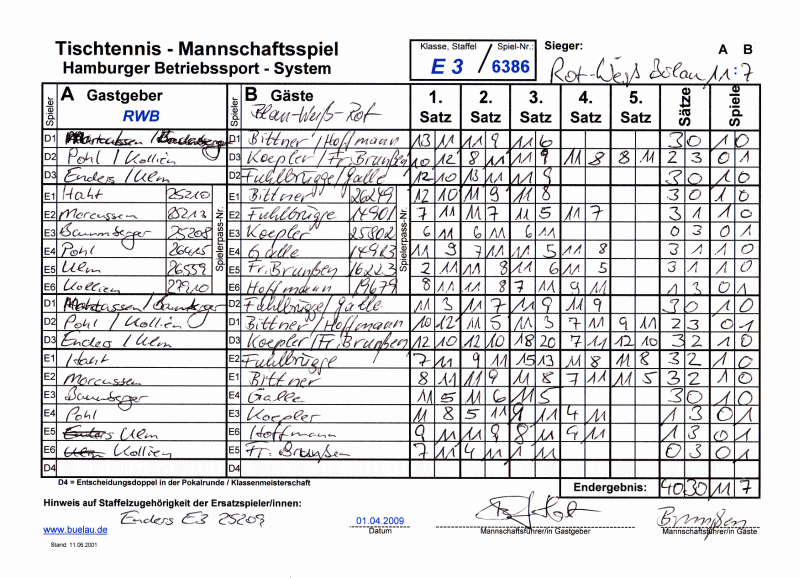 Tischtennis - Mannschaftsspiel
Hamburger Betriebssport - System
Klasse, Staffel Spiel-Nr.:
E 3 / 6386
Sieger: A B
Rot-Weiß Bülau 11:7
Spieler A Gastgeber Spieler B Gäste 1. Satz 2. Satz 3. Satz 4. Satz 5. Satz Sätze Spiele
RWB Blau-Weiß-Rot
D1 D1 Bittner / Hoffmann 13 11 11 9 11 6 3 0 1 0
D2 Pohl / Kollien D3 Koepler / Fr. Brunßen 10 12 8 11 11 9 11 8 8 11 2 3 0 1
D3 Enders / Ulm D2 Fuhlbrügge / Galle 12 10 13 11 11 9 3 0 1 0
E1 Haht 25210 E1 Bittner 26249 12 10 11 9 11 8 3 0 1 0
E2 Marcussen 25213 E2 Fuhlbrügge 14901 7 11 11 7 11 5 11 7 3 1 1 0
E3 Baumberger 25208 E3 Koepler 25802 6 11 6 11 6 11 0 3 0 1
E4 Pohl 26415 E4 Galle 14913 11 9 7 11 11 5 11 8 3 1 1 0
E5 Ulm 26559 E5 Fr. Brunßen 16223 2 11 11 8 11 6 11 5 3 1 1 0
E6 Kollien E6 Hoffmann 19679 8 11 11 8 7 11 9 11 1 3 0 1
Spielerpass-Nr. Spielerpass-Nr.
D1 / Baumberger D2 Fuhlbrügge / Galle 11 3 11 7 11 9 11 9 3 0 1 0
D2 Pohl / Kollien D1 Bittner / Hoffmann 10 12 11 5 11 3 7 11 9 11 2 3 0 1
D3 Enders / Ulm D3 Koepler / Fr. Brunßen 12 10 12 10 18 20 7 11 12 10 3 2 1 0
E1 Haht E2 Fuhlbrügge 7 11 9 11 15 13 11 8 11 8 3 2 1 0
E2 Marcussen E1 Bittner 8 11 11 9 11 8 7 11 11 5 3 2 1 0
E3 Baumberger E4 Galle 11 5 11 6 11 5 3 0 1 0
E4 Pohl E3 Koepler 11 8 5 11 9 11 4 11 1 3 0 1
E5 Enders Ulm E6 Hoffmann 9 11 11 9 8 11 9 11 1 3 0 1
E6 Ulm Kollien E5 Fr. Brunßen 7 11 4 11 1 11 0 3 0 1
D4 D4
D4 = Entscheidungsdoppel in der Pokalrunde / Klassenmeisterschaft
Endergebnis: 40 30 11 7
Hinweis auf Staffelzugehörigkeit der Ersatzspieler/innen:
Enders E3 25209
www.buelau.de 01.04.2009 Brunßen
Datum Mannschaftsführer/in Gastgeber Mannschaftsführer/in Gäste
Stand: 11.06.2001